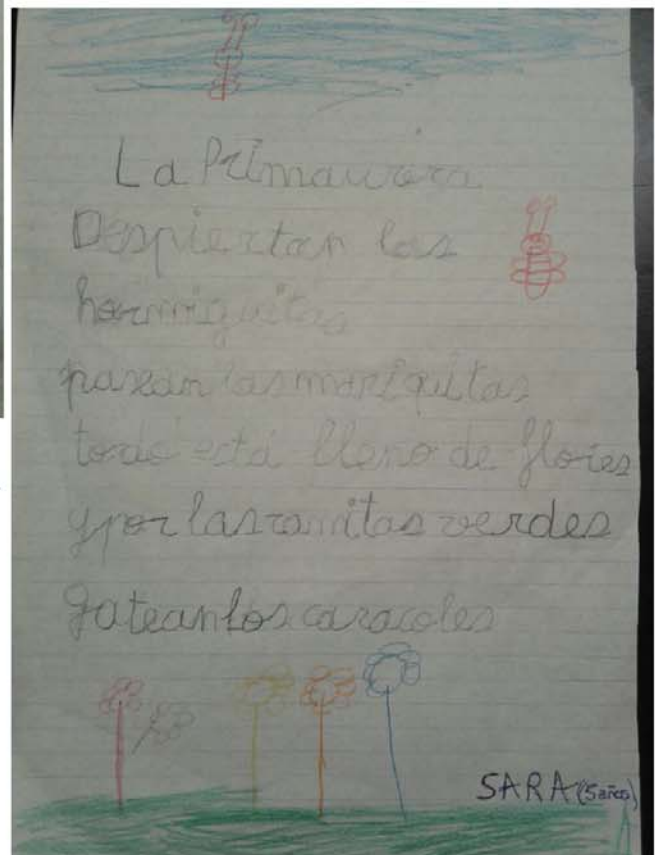 La Primavera
Despiertan las
hormiguitas
pasean las mariquitas
todo está lleno de flores
y por las ramitas verdes
gatean los caracoles
SARA (5 años)